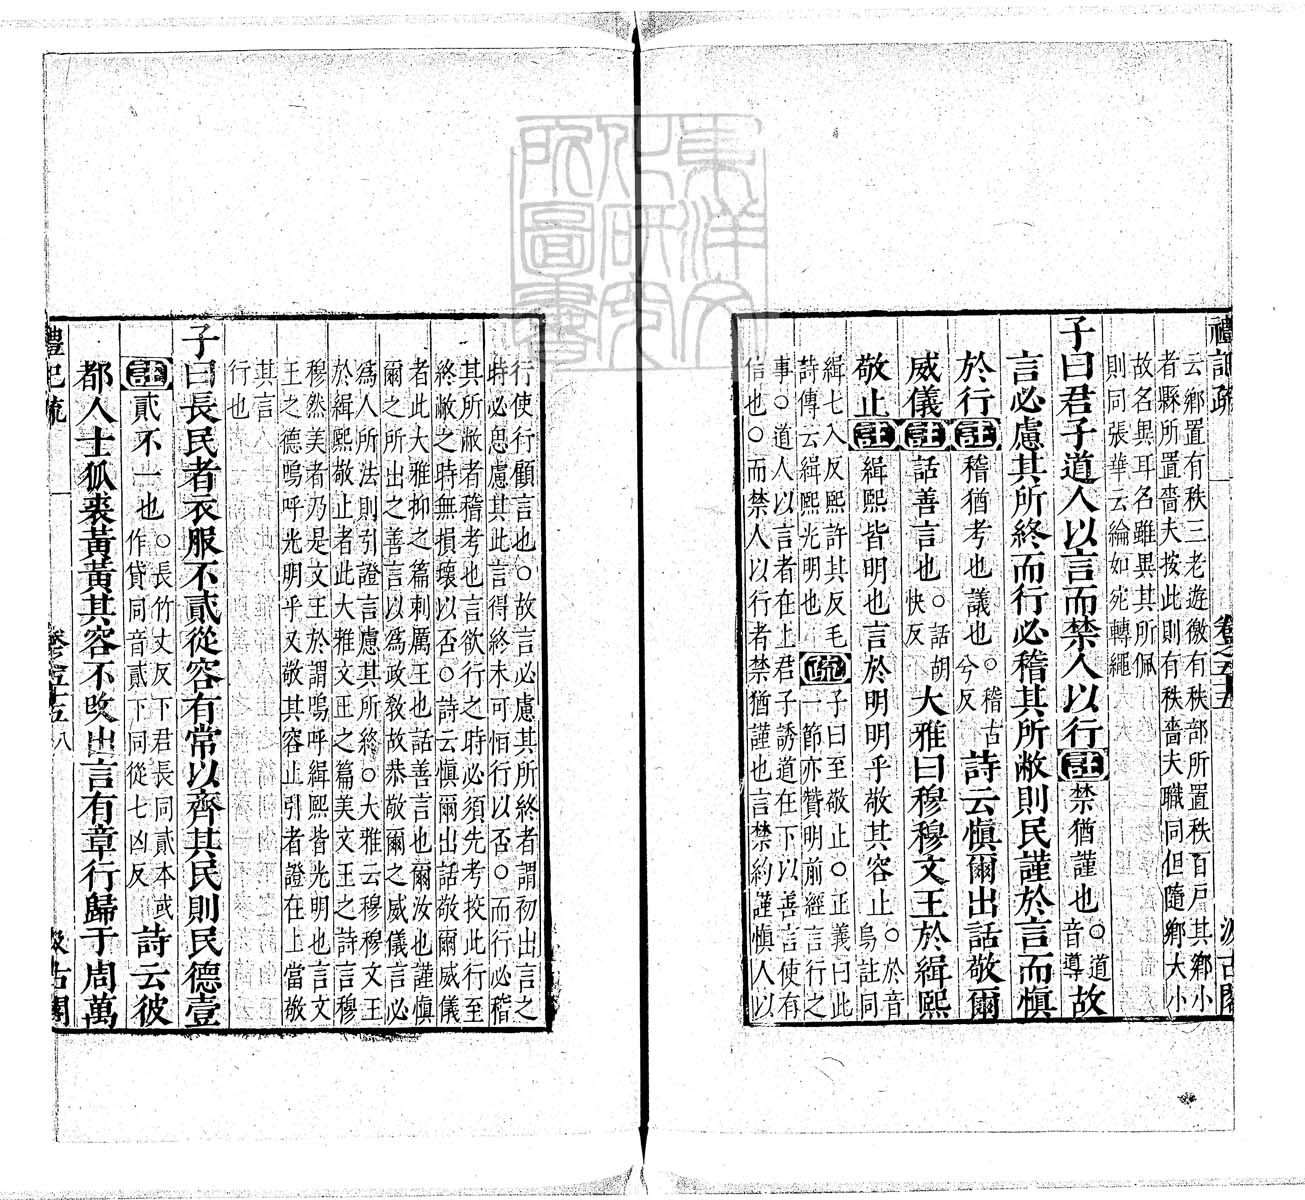 禮記疏 卷之五十五 汲古閣
云鄉置有秩三老遊徼有秩部所置秩百戶其鄉小
者縣所置嗇夫按此則有秩嗇夫職同但隨鄉大小
故名異耳名雖異其所佩
則同張華云綸如宛轉繩
子曰君子道人以言而禁人以行註禁猶謹也○道音導故
言必慮其所終而行必稽其所敝則民謹於言而慎
於行註稽猶考也議也○稽古兮反詩云慎爾出話敬爾
威儀註話善言也○話胡快反大雅曰穆穆文王於緝熙
敬止註緝熙皆明也言於明明乎敬其容止○於音烏註同
緝七入反熙許其反毛
詩傳云緝熙光明也
疏子曰至敬止○正義曰此
一節亦贊明前經言行之
事○道人以言者在上君子誘道在下以善言使有
信也○而禁人以行者禁猶謹也言禁約謹慎人以
行使行顧言也○故言必慮其所終者謂初出言之
時必思慮其此言得終末可恒行以否○而行必稽
其所敝者稽考也言欲行之時必須先考挍此行至
終敝之時無損壞以否○詩云慎爾出話敬爾威儀
者此大雅抑之篇刺厲王也話善言也爾汝也謹慎
爾之所出之善言以為政教故恭敬爾之威儀言必
為人所法則引證言慮其所終○大雅云穆穆文王
於緝熙敬止者此大雅文王之篇美文王之詩言穆
穆然美者乃是文王於謂嗚呼緝熙皆光明也言文
王之德嗚呼光明乎又敬其容止引者證在上當敬
其言
行也
子曰長民者衣服不貳從容有常以齊其民則民德壹
註貳不一也○長竹丈反下君長同貳本或作貸同音貳下同從七凶反詩云彼
都人士狐裘黃黃其容不改出言有章行歸于周萬
禮記疏 卷之五十五 八 汲古閣